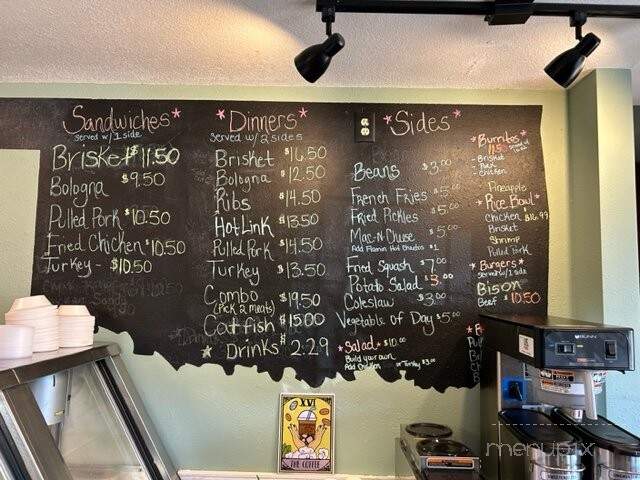 *Sandwiches*
served w/ 1 side
Brisket $11.50
Bologna $9.50
Pulled Pork $10.50
Fried Chicken $10.50
Turkey - $10.50
*Dinners*
served w/ 2 sides
Brisket $16.50
Bologna $12.50
Ribs $14.50
Hot Link $13.50
Pulled Pork $14.50
Turkey $13.50
Combo $19.50
(Pick 2 meats)
Catfish $15.00
Drinks 2.29
*Sides*
Beans $3.00
French Fries $5.00
Fried Pickles $5.00
Mac-N-Cheese $5.00
Add Flamin Hot Cheetos $1
Fried Squash $7.00
Potato Salad $3.00
Coleslaw $3.00
Vegetable of Day $5.00
*Salad* $10.00
Build your own
Add Chicken or Turkey $3.00
*Burritos
- Brisket
- Pork
- Chicken
Pineapple
*Rice Bowl*
Chicken $16.99
Brisket
Shrimp
Pulled Pork
*Burgers*
Served w/ 1 side
Bison
Beef $10.50
XVI
THE COFFEE
BUNN
menupix